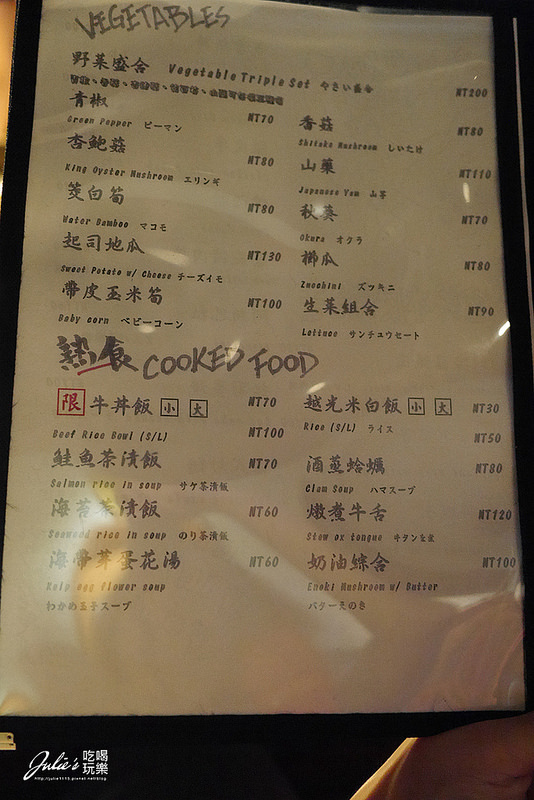 VEGETABLES
野菜盛合 Vegetable Triple Set やさい盛合 NT200
青椒 NT70
Green Pepper ピーマン
杏鮑菇 NT80
King Oyster Mushroom エリンギ
茭白筍 NT80
Water Bamboo マコモ
起司地瓜 NT130
Sweet Potato w/ Cheese チーズイモ
帶皮玉米筍 NT100
Baby corn ベビーコーン
香菇 NT80
Shitake Mushroom しいたけ
山藥 NT110
Japanese Yam 山芋
秋葵 NT70
Okura オクラ
櫛瓜 NT80
Zucchini ズッキニ
生菜組合 NT90
Lettuce サンチュウセート
熟食 COOKED FOOD
限 牛丼飯 小 大 NT70
Beef Rice Bowl (S/L) NT100
鮭魚茶漬飯 NT70
Salmon rice in soup サケ茶漬飯
海苔茶漬飯 NT60
Seaweed rice in soup のり茶漬飯
海帶芽蛋花湯 NT60
Kelp egg flower soup
わかめ玉子スープ
越光米白飯 小 大 NT30
Rice (S/L) ライス NT50
酒蒸蛤蠣 NT80
Clam Soup ハマスープ
燉煮牛舌 NT120
Stew ox tongue 牛タン
奶油綜合 NT100
Enoki Mushroom w/ Butter
バターえのき
Julie's 吃喝玩樂
http://julie1115.pixnet.net/blog